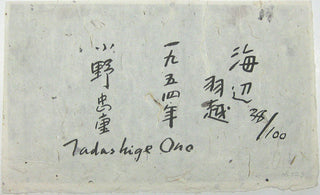 海辺
羽越
38/100
一九五四年
小野忠重
Tadashige Ono